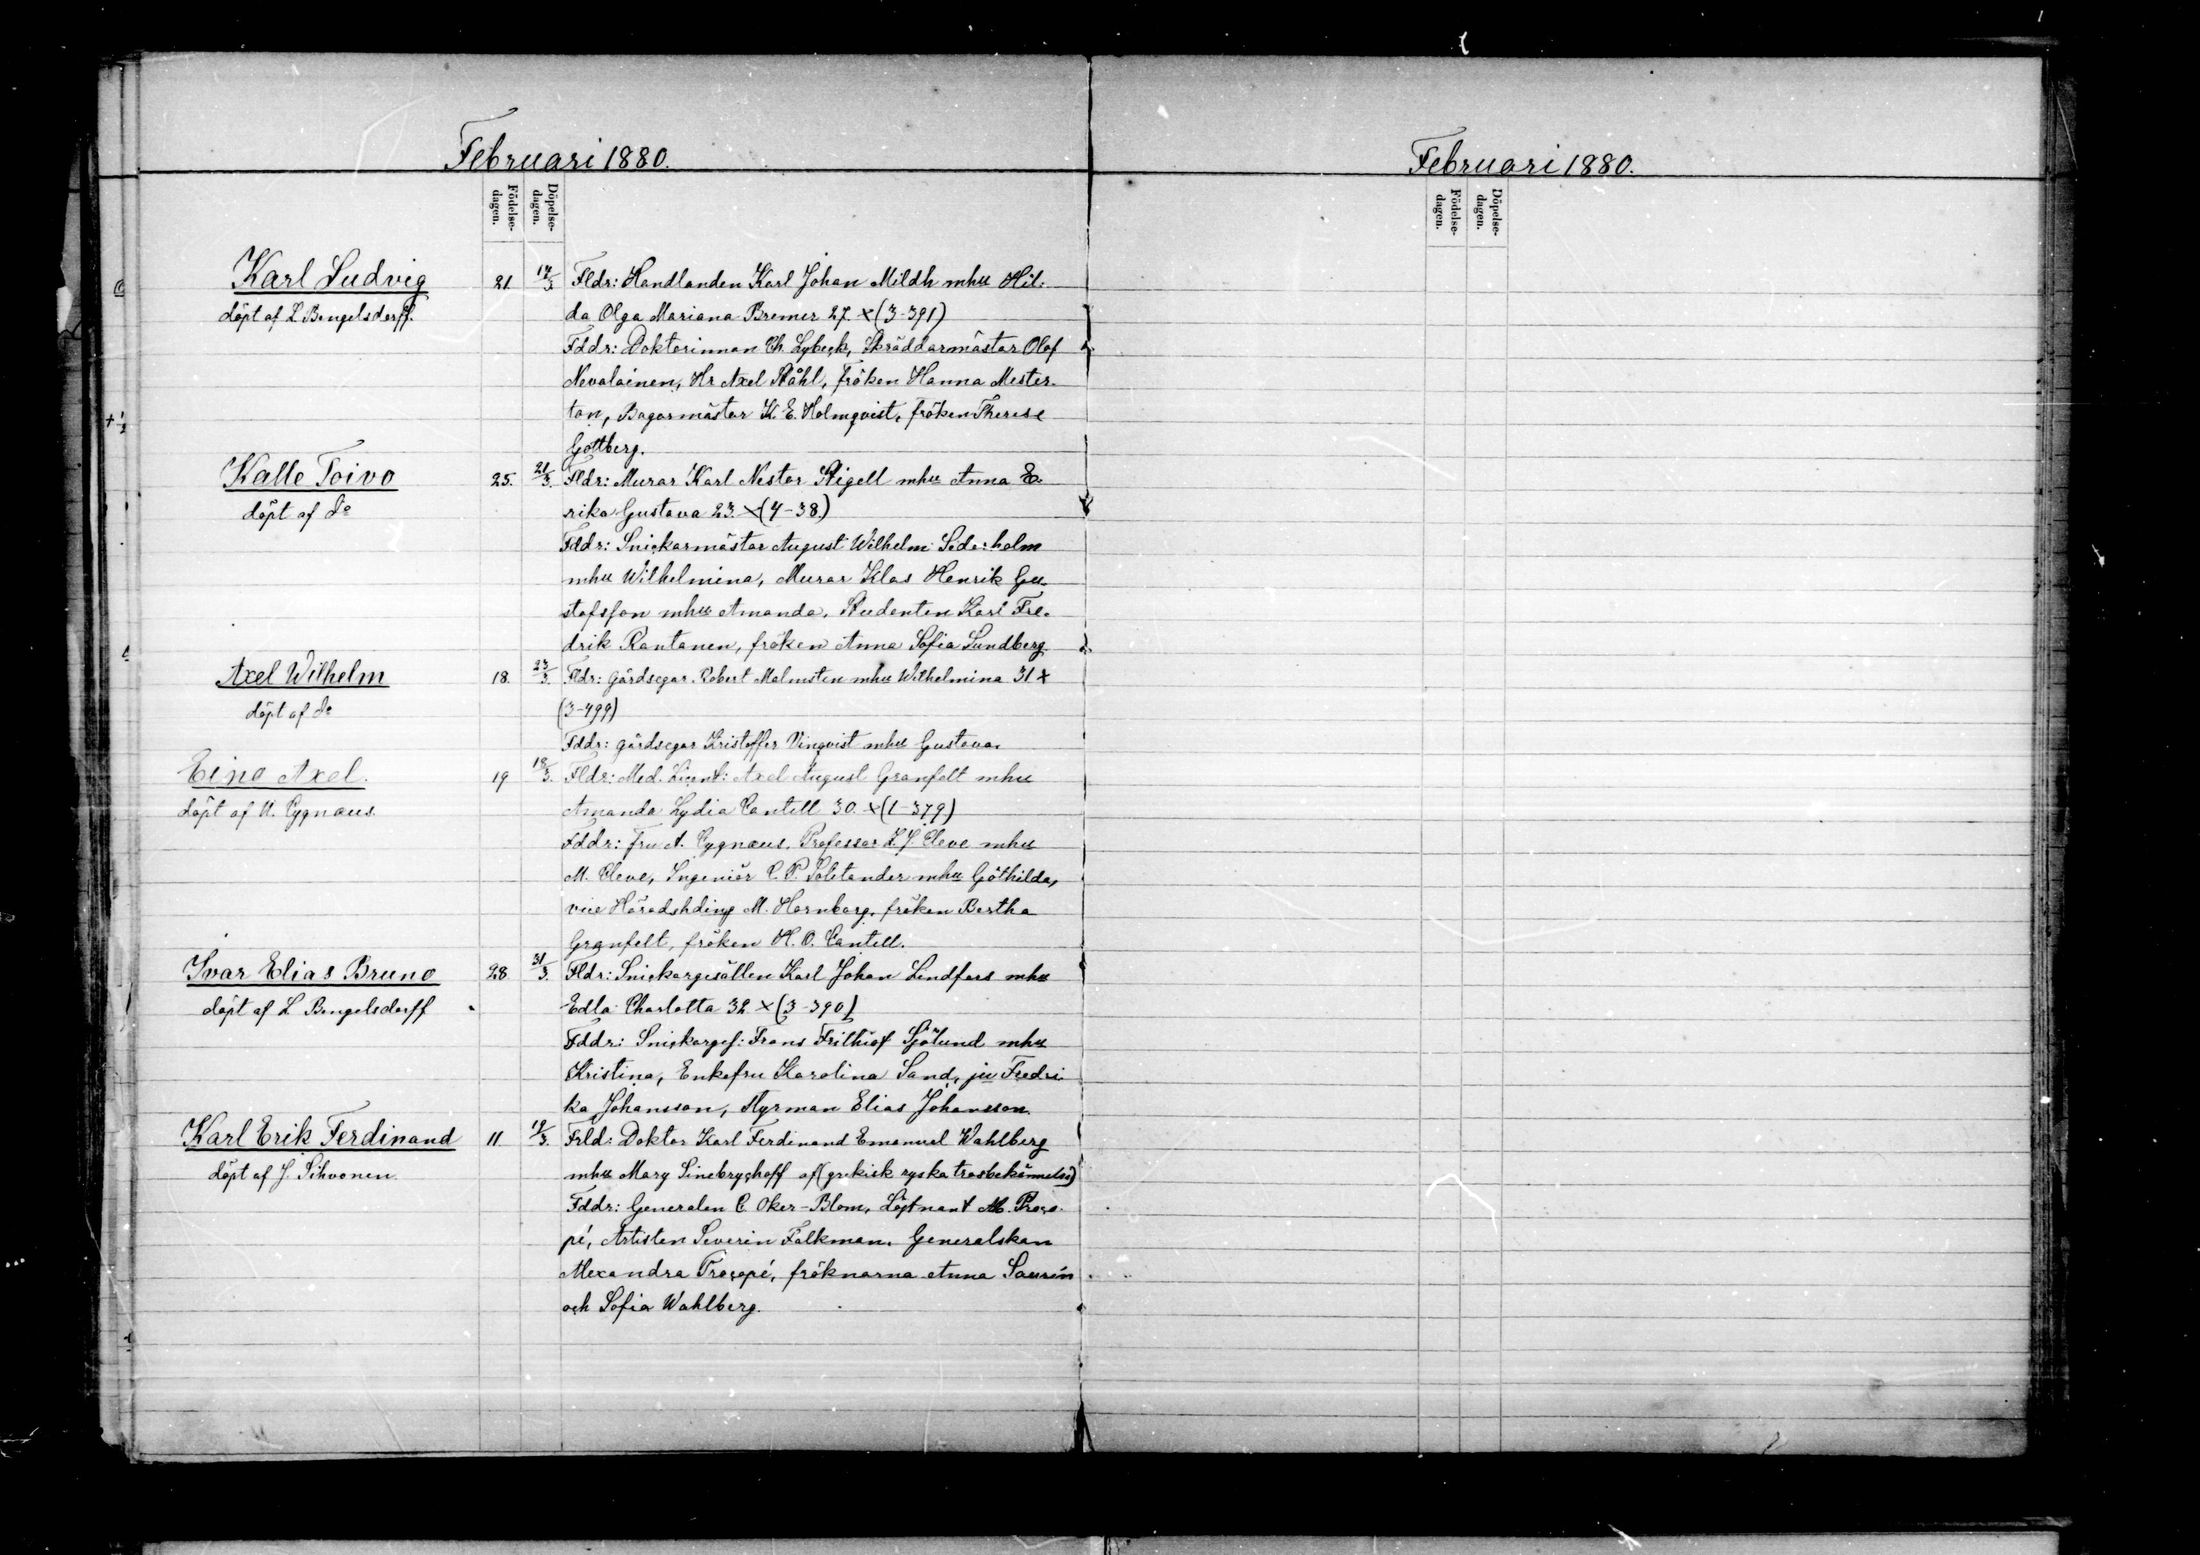 Februari 1880.
Födelse-
dagen.
Döpelse-
dagen.
Karl Ludvig
döpt af L Bengelsdorff.
21.
17/3.
Fldr: Handlanden Karl Johan Mildh mhu Hil-
da Olga Mariana Bremer 27. x (3-391)
Fddr: Doktorinnan Ch. Lybeck, Skräddarmästar Olof
Nevalainen, Hr Axel Ståhl, fröken Hanna Mester-
ton, Bagarmästar K. E. Holmqvist, fröken Therese
Gottberg.
Kalle Toivo
döpt af do
25.
21/3.
Fldr: Murar Karl Nestor Stigell mhu Anna E-
rika Gustava 23. x (4-38.)
Fddr: Snickarmästar August Wilhelm Sederholm
mhu Wilhelmina, Murar Klas Henrik Gu-
stafsson mhu Amanda, Studenten Karl Fre-
drik Rantanen, fröken Anna Sofia Sundberg
Axel Wilhelm
döpt af do
18.
23/3.
Fldr: gårdsegar. Robert Malmsten mhu Wilhelmina 31 x
(3-499)
Fddr: gårdsegar Kristoffer Vinqvist mhu Gustava.
Eino Axel.
döpt af U. Cygnæus.
19
18/3.
Fldr: Med. Licent: Axel August Granfelt mhu
Amanda Lydia Cantell 30. x (1-379)
Fddr: fru A. Cygnæus, Professor Z. J. Cleve mhu
M. Cleve, Ingeniör C. P. Solitander mhu Göthilda,
vice Häradshding M. Hornborg, fröken Bertha
Granfelt, fröken H. O. Cantell.
Ivar Elias Bruno
döpt af L Bengelsdorff
28
31/3.
Fldr: Snickargesällen Karl Johan Lindfors mhu
Edla Charlotta 32 x (3-390)
Fddr: Snickarges: Frans Frithiof Sjölund mhu
Kristina, Enkefru Karolina Sand, pu Fredri
ka Johansson, Styrman Elias Johansson.
Karl Erik Ferdinand
döpt af J. Sihvonen.
11.
19/3.
Frld: Doktor Karl Ferdinand Emanuel Wahlberg
mhu Mary Sinebrychoff af (grekisk ryska trosbekännelse)
Fddr: Generalen C. Oker-Blom, Löjtnant M. Proco-
pé, Artisten Severin Falkman, Generalskan
Alexandra Procopé, fröknarna Anna Saurén
och Sofia Wahlberg.
Februari 1880.
Födelse-
dagen.
Döpelse-
dagen.